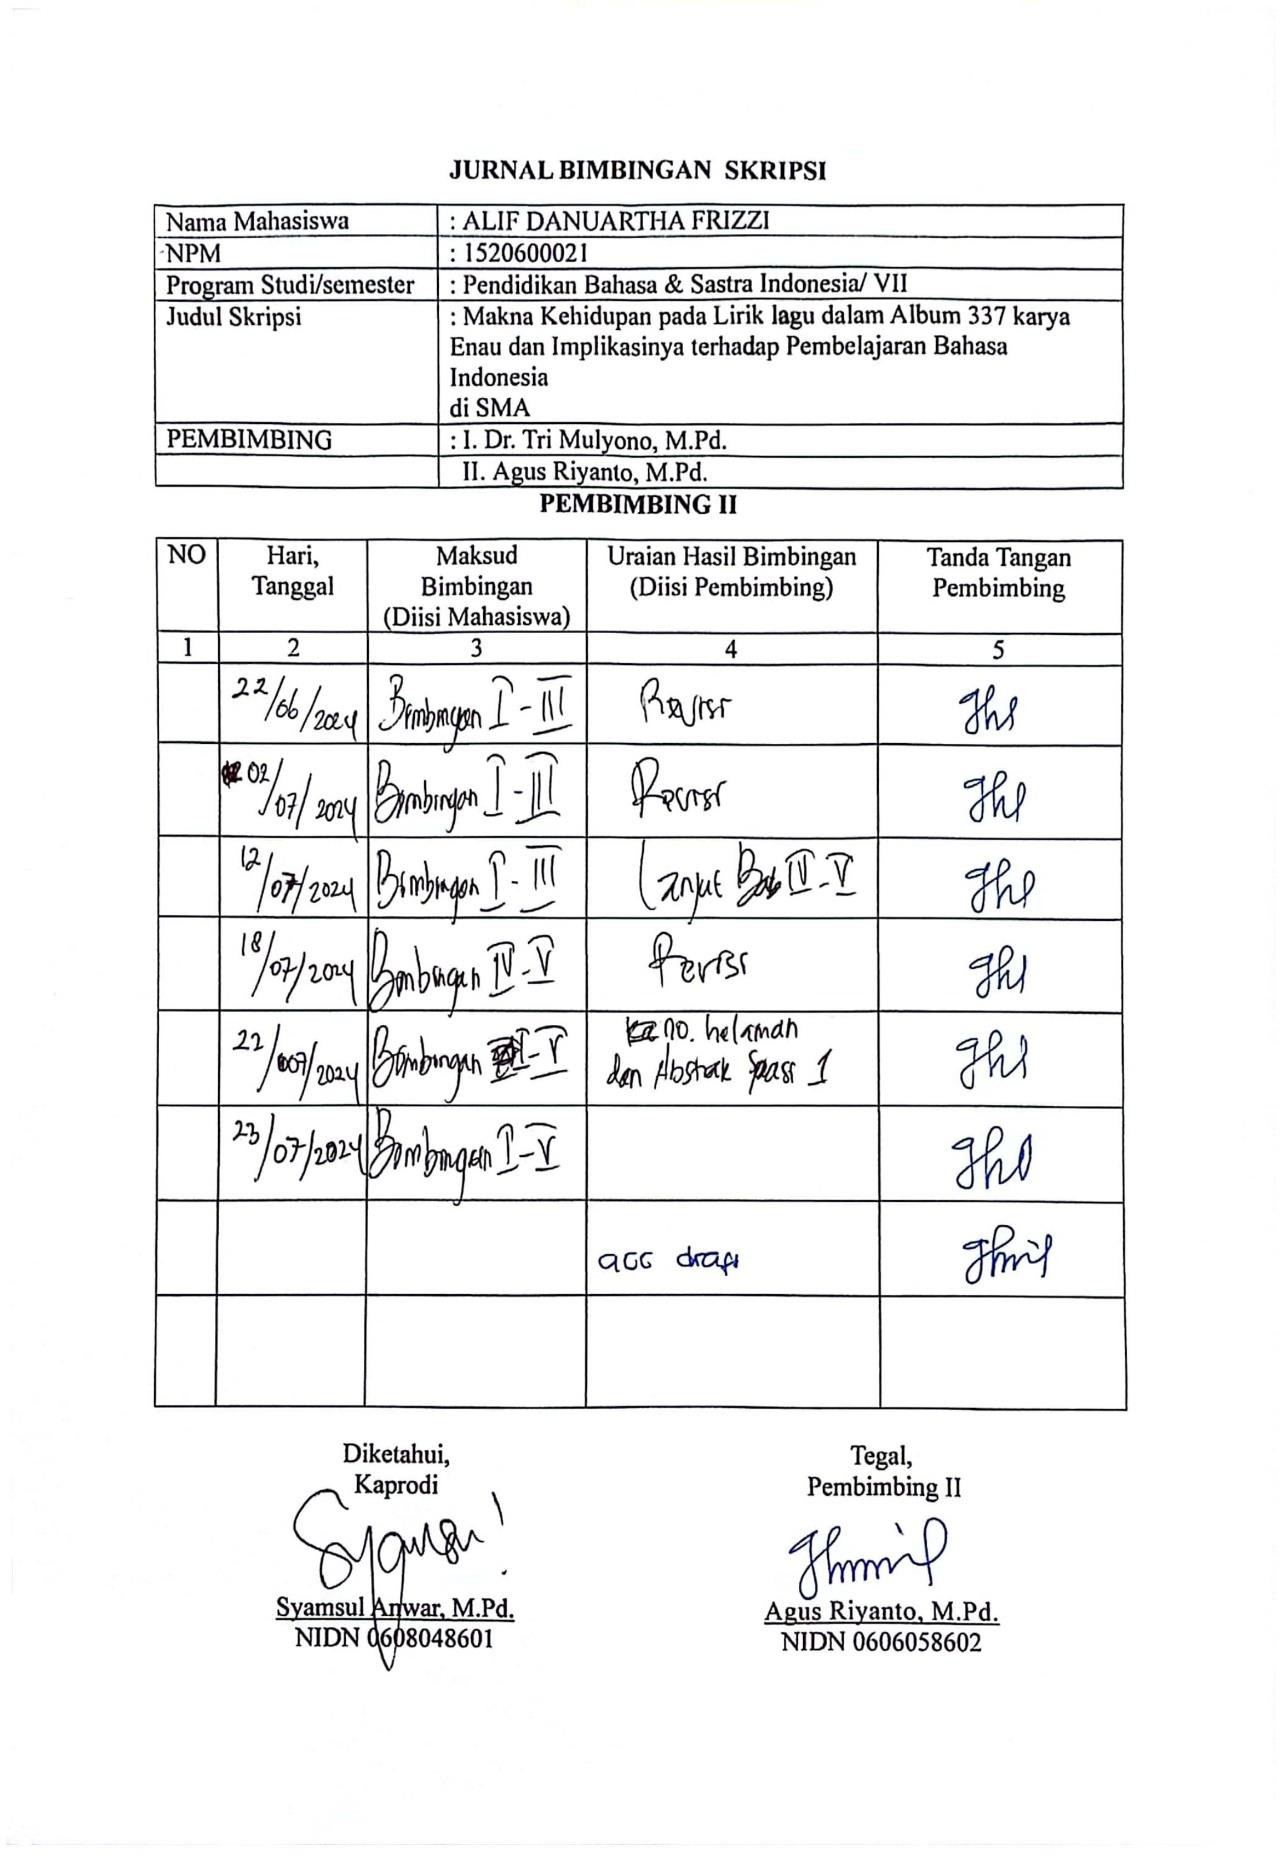 JURNAL BIMBINGAN SKRIPSI
Nama Mahasiswa : ALIF DANUARTHA FRIZZI
NPM : 1520600021
Program Studi/semester : Pendidikan Bahasa & Sastra Indonesia/ VII
Judul Skripsi : Makna Kehidupan pada Lirik lagu dalam Album 337 karya
Enau dan Implikasinya terhadap Pembelajaran Bahasa
Indonesia
di SMA
PEMBIMBING : I. Dr. Tri Mulyono, M.Pd.
II. Agus Riyanto, M.Pd.
PEMBIMBING II
NO Hari, Tanggal Maksud Bimbingan (Diisi Mahasiswa) Uraian Hasil Bimbingan (Diisi Pembimbing) Tanda Tangan Pembimbing
1 2 3 4 5
22/06/2024 Bimbingan I - III Revisi
02/07/2024 Bimbingan I - III Revisi
12/07/2024 Bimbingan I - III Lanjut Bab IV - V
18/07/2024 Bimbingan IV - V Revisi
22/07/2024 Bimbingan I - V no. halaman
dan Abstrak Spasi 1
23/07/2024 Bimbingan I - V
acc draf
Diketahui,
Kaprodi
Syamsul Anwar, M.Pd.
NIDN 0608048601
Tegal,
Pembimbing II
Agus Riyanto, M.Pd.
NIDN 0606058602